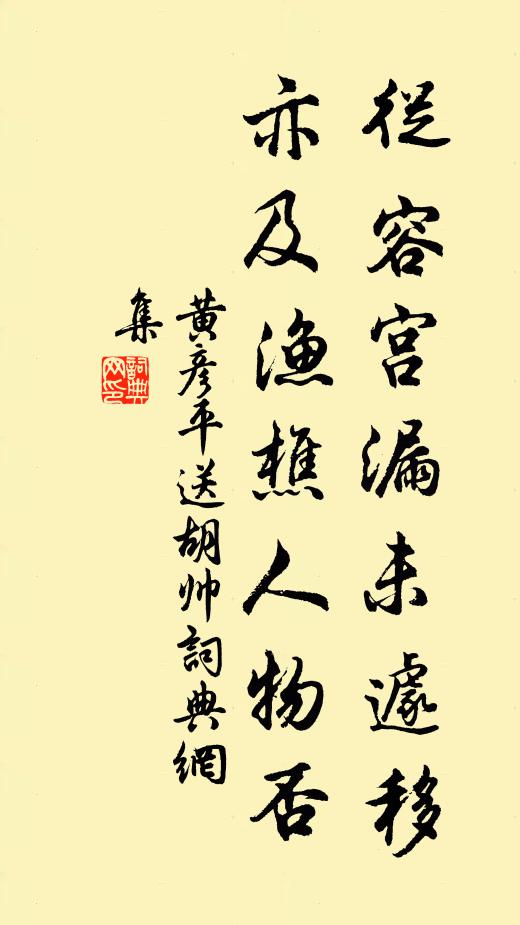 從容宮漏未遽移
亦及漁樵人物否
黃彥平送胡帅詞典網
集
詞典
网印